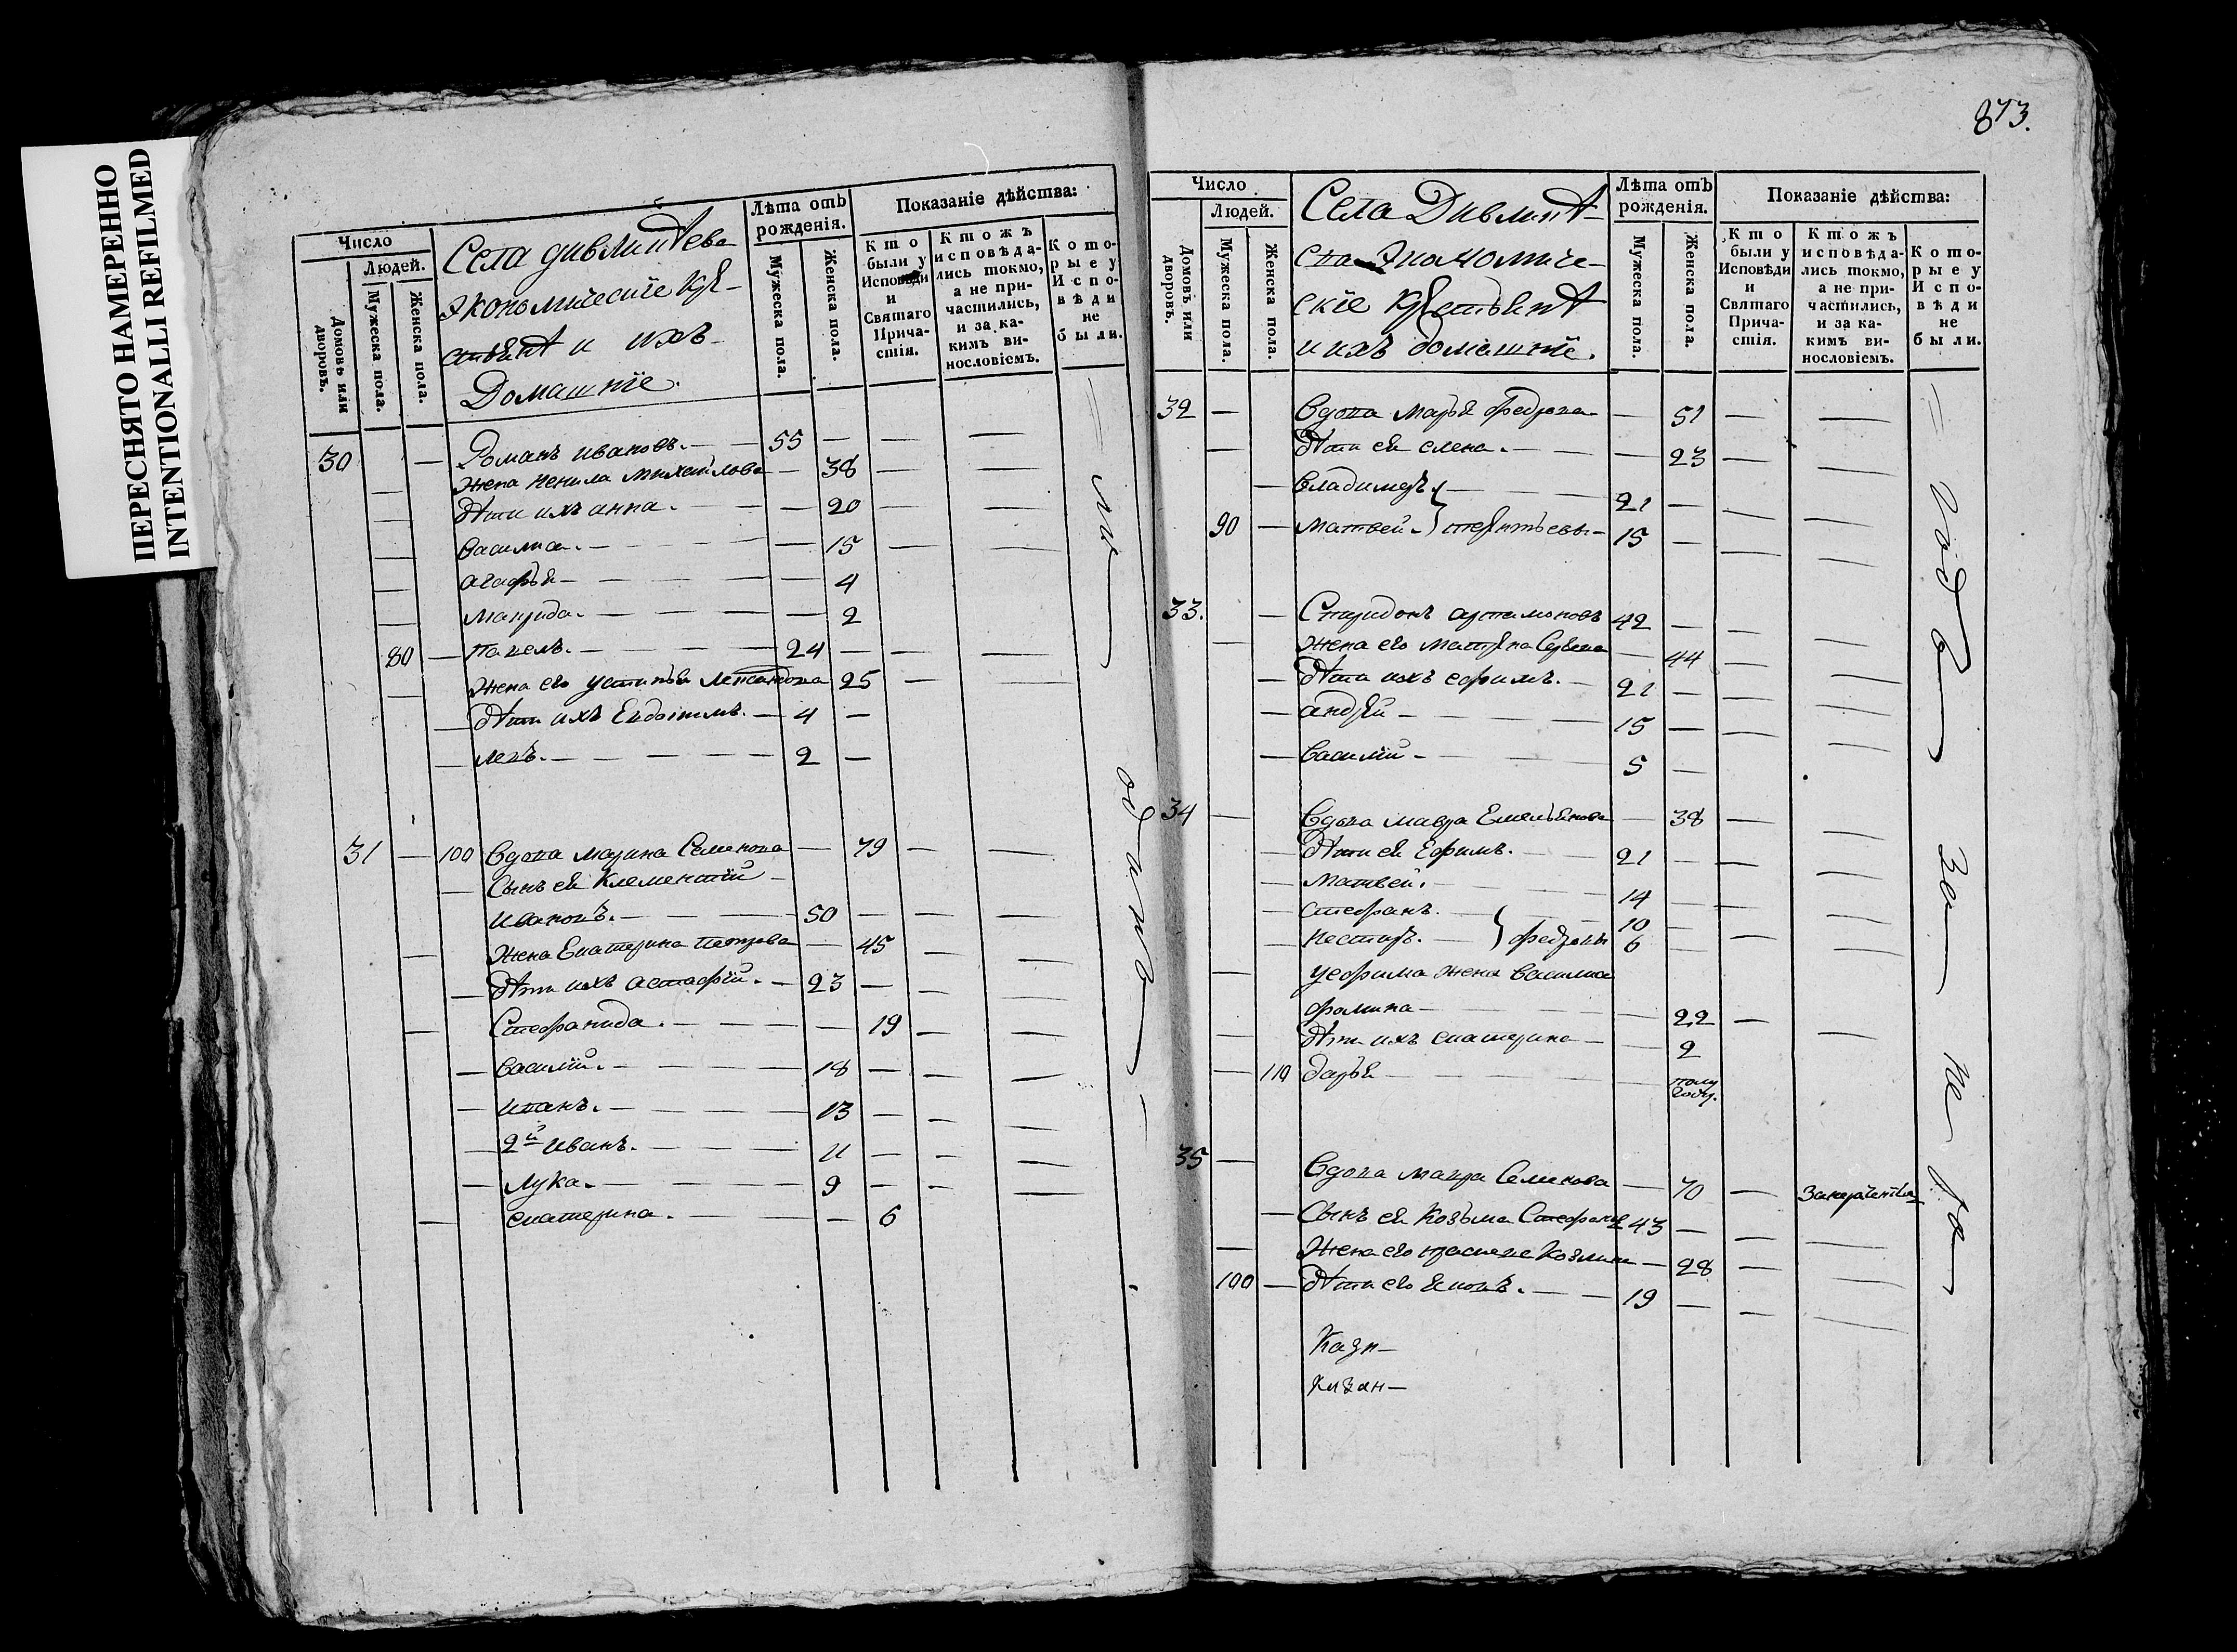 ПЕРЕСНЯТО НАМЕРЕННО
INTENTIONALLI REFILMED
Число
Людей.
Домовъ или дворовъ.
Мужеска пола.
Женска пола.
Села
Экономическіе кре-
стьянѣ и ихъ
Домашніе.
Лѣта отъ рожденія.
Мужеска пола.
Женска пола.
Показаніе дѣйства:
Кто были у Исповѣди и Святаго Прича-стія.
Ктожъ исповѣда-лись токмо, а не при-частились, и за ка-кимъ ви-нословіемъ.
Кото-рые у Испо-вѣди не были.
30 — Романъ Ивановъ. — 55 — — —
— Жена Ненила Михаилова — 38 — —
— дѣти ихъ анна. — 20 — —
— Василиса. — 15 — —
— агафья — 4
— Мавріда. — 2
80 — Павелъ. — 24 — — —
— Жена его Устинья — 25 — —
— дѣти ихъ Евдокимъ. — 4 —
— левъ. — 2 —
31 — 100 Вдова марина Семенова — 79 — —
— Сынъ ея Клементій
Ивановъ. — 50 — — —
— Жена Екатерина Петрова — 45 — —
— дѣти ихъ астафій. — 23 — — —
— Стефанида. — 19 — —
— Василій. — 18 — — —
— Иванъ. — 13 — — —
— 2й Иванъ. — 11 — — —
— Лука. — 9 — — —
— екатерина. — 6
873.
Число
Людей.
Домовъ или дворовъ.
Мужеска пола.
Женска пола.
Села
скіе крестьянѣ
и ихъ домашніе.
Лѣта отъ рожденія.
Мужеска пола.
Женска пола.
Показаніе дѣйства:
Кто были у Исповѣди и Святаго Прича-стія.
Ктожъ исповѣда-лись токмо, а не при-частились, и за ка-кимъ ви-нословіемъ.
Кото-рые у Испо-вѣди не были.
32 — Вдова марья Федрова — 51 — —
— дѣти ея елена. — 23 — —
— Владимеръ. — 21 — — —
90 — Матвей. — 15 — — —
33. — Спиридонъ артамоновъ 42 — — —
— Жена его матрена — 44 — —
— дѣти ихъ ефимъ. — 21 — — —
— андрей — 15 — — —
— Василій — 5 —
34 — Вдова мавра Емельянова — 38 — —
— дѣти ея Ефимъ. — 21 — — —
— Матвей. — 14 — — —
— стефанъ. — 10 — — —
— Нестиръ. — федровы 6 — — —
— у ефима жена Василиса
фомина — 22 — —
— дѣти ихъ екатерина — 2
— 110 дарья — полу году.
35 — Вдова мавра Семенова — 70 —
— Сынъ ея Козьма Стефановъ 43 — — —
— Жена его — 28 — —
100 — дѣти его — 19 — — —